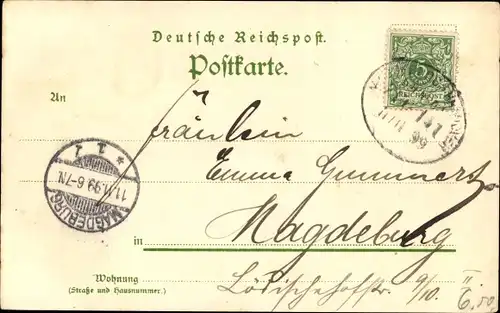 Deutsche Reichspost.
Postkarte.
An
5
REICHSPOST
Fräulein
Emma Gummert
MAGDEBURG
11.11.99.6-7N.
* 1 1
in Magdeburg
Wohnung
(Straße und Hausnummer.)
9/10. II
6.50